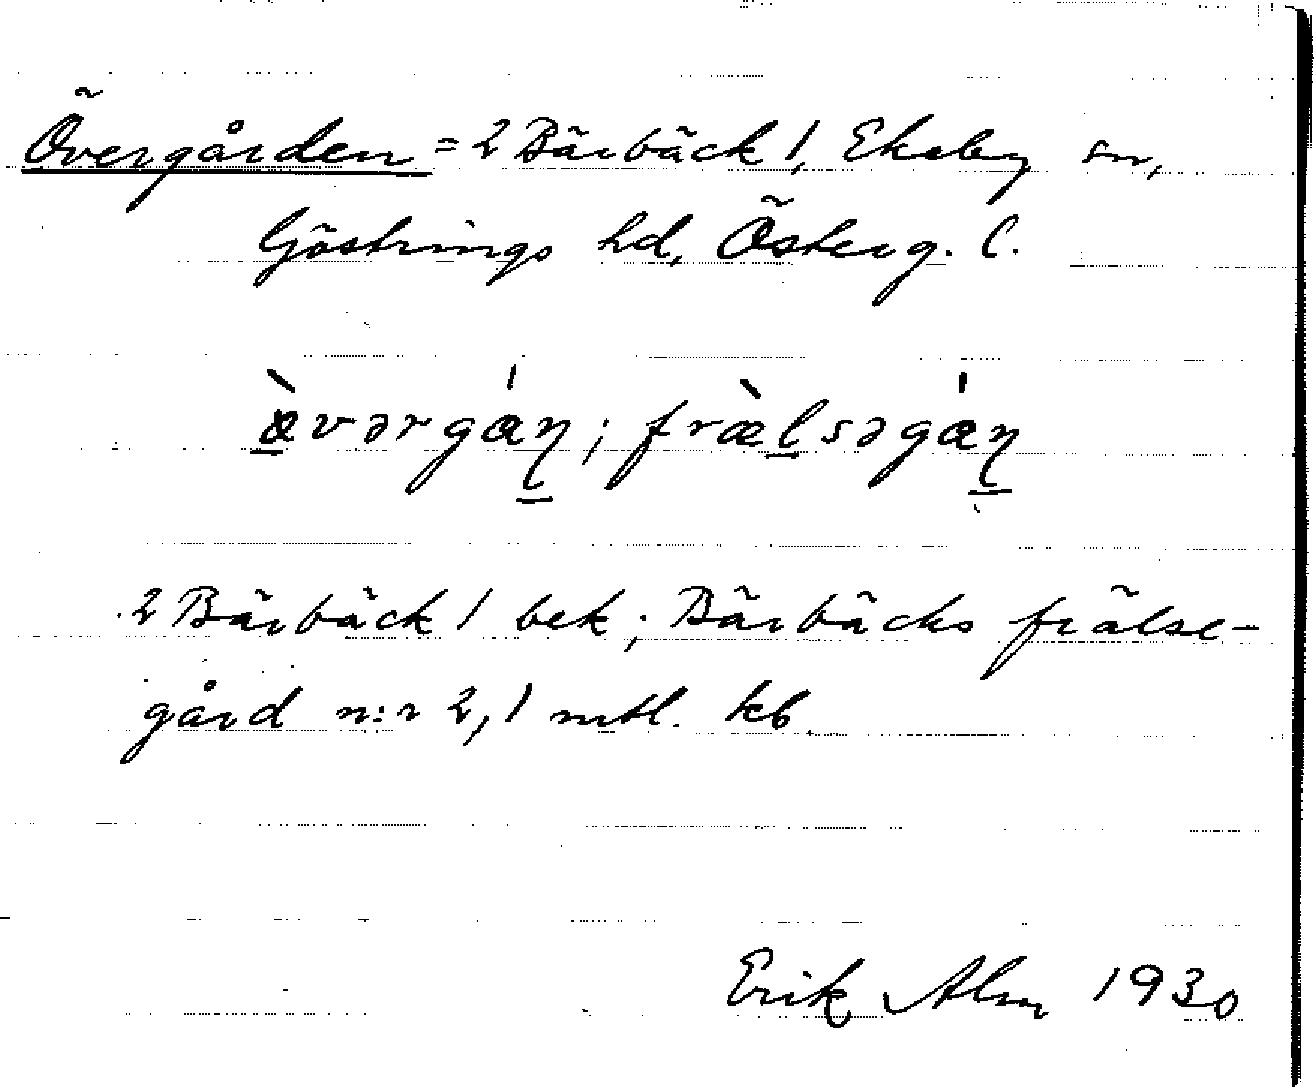 Övergården = 2 Bärbäck 1, Ekeby sn,
Göstrings hd, Österg. l.
ə̀vərgáɳ; fræ̀lsəgáɳ
2 Bärbäck 1 bek; Bärbäcks frälse-
gård n:r 2, 1 mtl. kb.
Erik Alm 1930